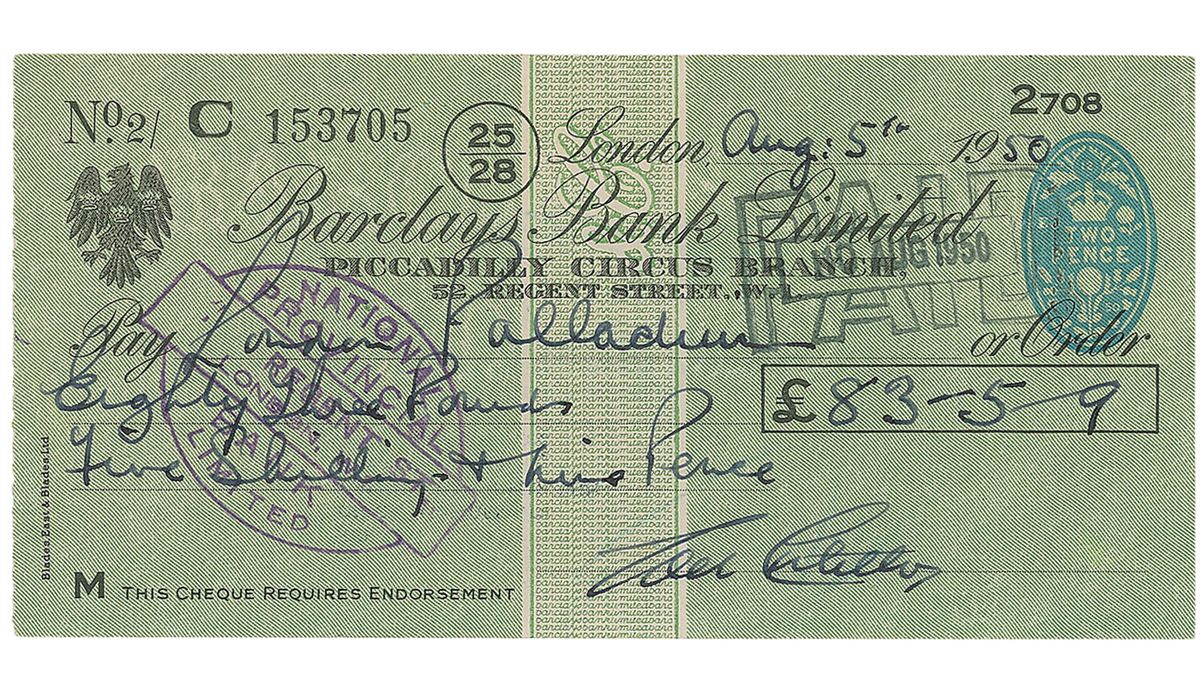 No. 2/ C 153705
25
28
London, Aug: 5th 1950
2708
Barclays Bank Limited
PICCADILLY CIRCUS BRANCH,
52, REGENT STREET., W.1.
PAID
AUG 1950
PAID
TWO
PENCE
Pay London Palladium or Order
Eighty Three Pounds
£83-5-9
Five Shillings + Nine Pence
NATIONAL
PROVINCIAL
REGENT ST.
LONDON
BANK
LIMITED
Blades, East & Blades Ltd.
M THIS CHEQUE REQUIRES ENDORSEMENT